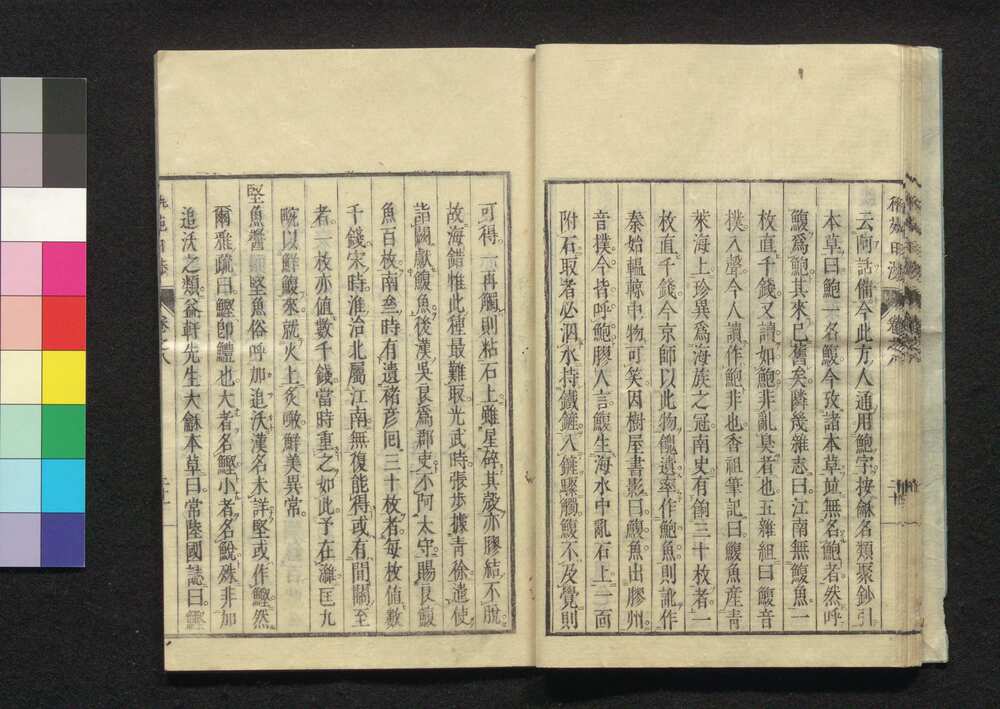 云阿話備今此方人通用鮑字按龢名類聚鈔引
本草曰鮑一名鰒今攷諸本草竝無名鮑者然呼
鰒爲鮑其來已舊矣隣幾雜志曰江南無鰒魚一
枚直千錢又讀如鮑非亂臭者也五雜組曰鰒音
撲入聲今人讀作鮑非也香祖筆記曰鰒魚産青
萊海上珍異爲海族之冠南史有餉三十枚者一
枚直千錢今京師以此物餽遺率作鮑魚則訛作
秦始轀輬中物可笑因樹屋書影曰鰒魚出膠州
音撲今皆呼鮑膠人言鰒生海水中亂石上一面
附石取者必泅水持鐵鏟入鏟驟觸鰒不及覺則
可得一再觸則粘石上雖星碎其殼亦膠結不脫
故海錯惟此種最難取光武時張步據青徐遣使
詣闕獻鰒魚後漢吳良爲郡吏不阿太守賜良鰒
魚百枚南齊時有遺褚彥回三十枚者每枚值數
千錢宋時淮洽北屬江南無復能得或有間關至
者一枚亦值數千錢當時重之如此予在濰匡九
畹以鮮鰒來就火上炙噉鮮美異常
堅魚醬 堅魚俗呼加追沃漢名未詳堅或作鰹然
爾雅疏曰鰹卽鱧也大者名鰹小者名鮵殊非加
追沃之類益軒先生大龢本草曰常陸國誌曰鰹
卷之八